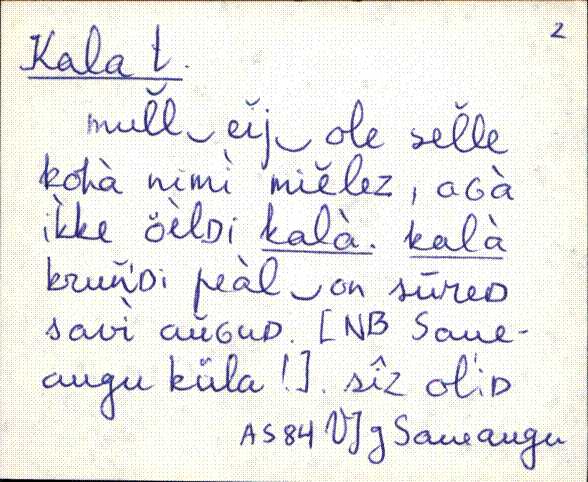 2
Kala t.
mull‿eij‿ole selle
kohà nimì mièlez, aGà
ìkke öèlDi kalà. kalà
kruńDi peàl‿on sūreD
savì auGuD. [NB Saue-
augu küla!]. sîz ol'iD
AS84 VJg Saueaugu